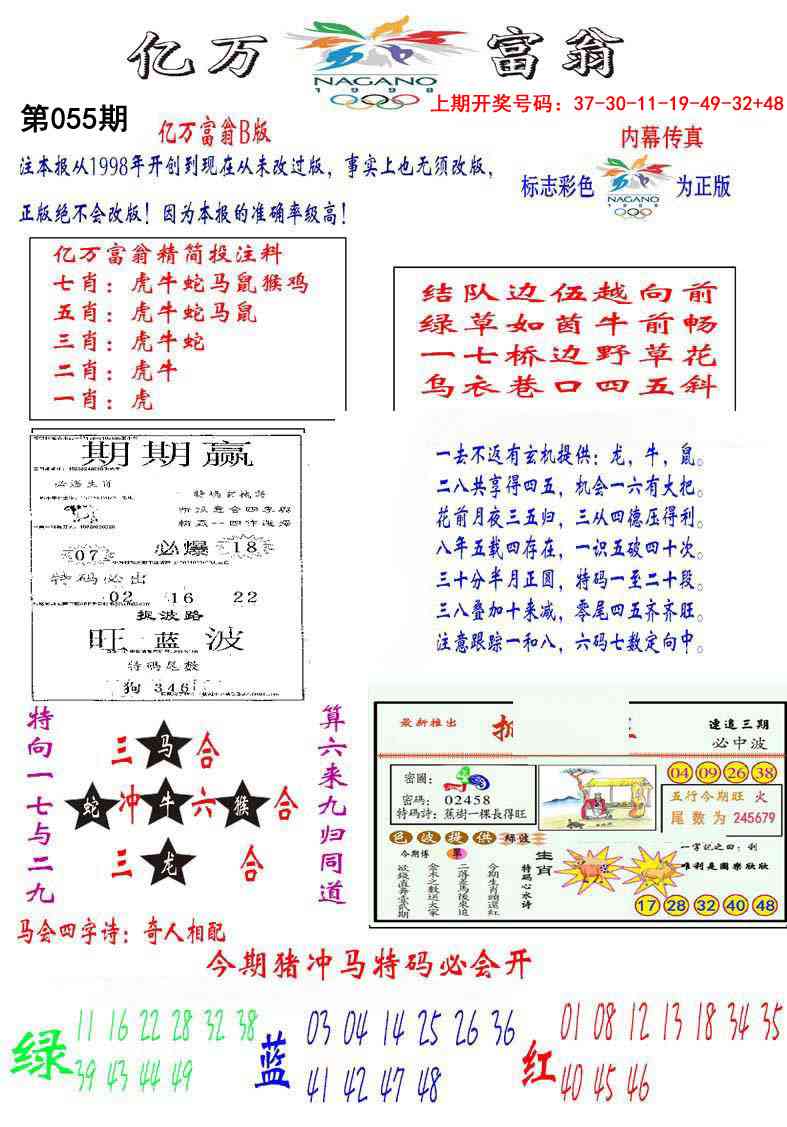 亿万富翁
NAGANO
1998
上期开奖号码：37-30-11-19-49-32+48
第055期
亿万富翁B版
内幕传真
注本报从1998年开创到现在从未改过版，事实上也无须改版，
正版绝不会改版！因为本报的准确率级高！
标志彩色
NAGANO
1998
为正版
亿万富翁精简投注料
七肖：虎牛蛇马鼠猴鸡
五肖：虎牛蛇马鼠
三肖：虎牛蛇
二肖：虎牛
一肖：虎
结队边伍越向前
绿草如茵牛前畅
一七桥边野草花
乌衣巷口四五斜
期期赢
必选生肖
07
必爆
18
特码必出
02 16 22
捉波路
旺蓝波
特码尾数
狗 346
一去不返有玄机提供：龙，牛，鼠。
二八共享得四五，机会一六有大把。
花前月夜三五归，三从四德压得利。
八年五载四存在，一识五破四十次。
三十分半月正圆，特码一至二十段。
三八叠加十来减，零尾四五齐齐旺。
注意跟踪一和八，六码七数定向中。
特向一七与二九
三马合
蛇冲牛六猴合
三龙合
算六来九归同道
最新推出
速追三期
必中波
密圈：
密码：02458
特码詩：蕉樹一棵長得旺
04 09 26 38
五行今期旺 火
尾数为 245679
色波提供 绿波
今期博
單
生肖
特码心水诗
今期生肖頭還紅
二落差馬後來追
金木之数送大家
欲錢直奔壹貳期
一字记之曰：利
唯利是圖樂欣欣
17 28 32 40 48
马会四字诗：奇人相配
今期猪冲马特码必会开
绿
11 16 22 28 32 38
39 43 44 49
蓝
03 04 14 25 26 36
41 42 47 48
红
01 08 12 13 18 34 35
40 45 46